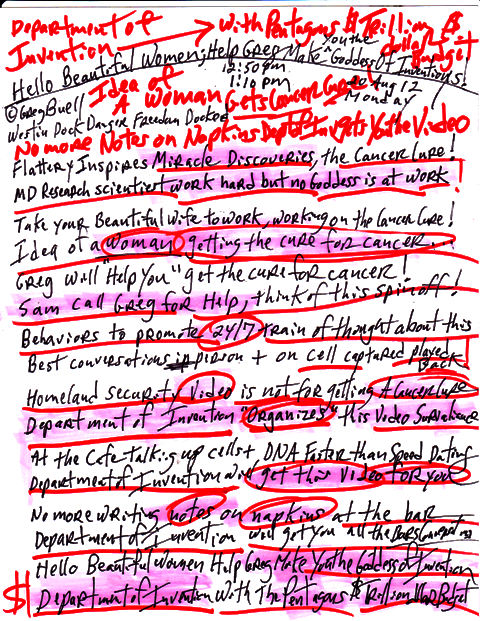 Department of Invention
With Pentagons $ Trillion $ dollar Budget
Hello Beautiful Women; Help Greg Make You the Goddess Of Inventions!
12:50 am
1:10 pm
© Greg Buell
Idea of A Woman Gets Cancer Cure
Aug 12 Monday
Westin Dock Danger Freedom Docked
No more Notes on Napkins Dept of Inv gets You the Video
Flattery Inspires Miracle Discoveries, the Cancer Cure!
MD Research scientist work hard but no Goddess is at work!
Take your Beautiful wife to work, working on the Cancer Cure!
Idea of a woman getting the cure for cancer.
Greg will "Help You" get the cure for cancer!
Sam call Greg for Help, think of this spin off!
Behaviors to promote 24/7 train of thought about this
Best conversations in person + on cell captured played Back!
Homeland security Video is not for getting A Cancer Cure
Department of Invention "Organizes" this Video Survailance
At the Cafe talking up cells + DNA Faster than Speed Dating
Department of Invention will get this Video for you
No more writing notes on napkins at the bar
Department of Invention will get you all the Bars
Hello Beautiful Women Help Greg Make You the Goddess of Invention
$ Department of Invention With The Pentagons $ Trillion Dollar Budget